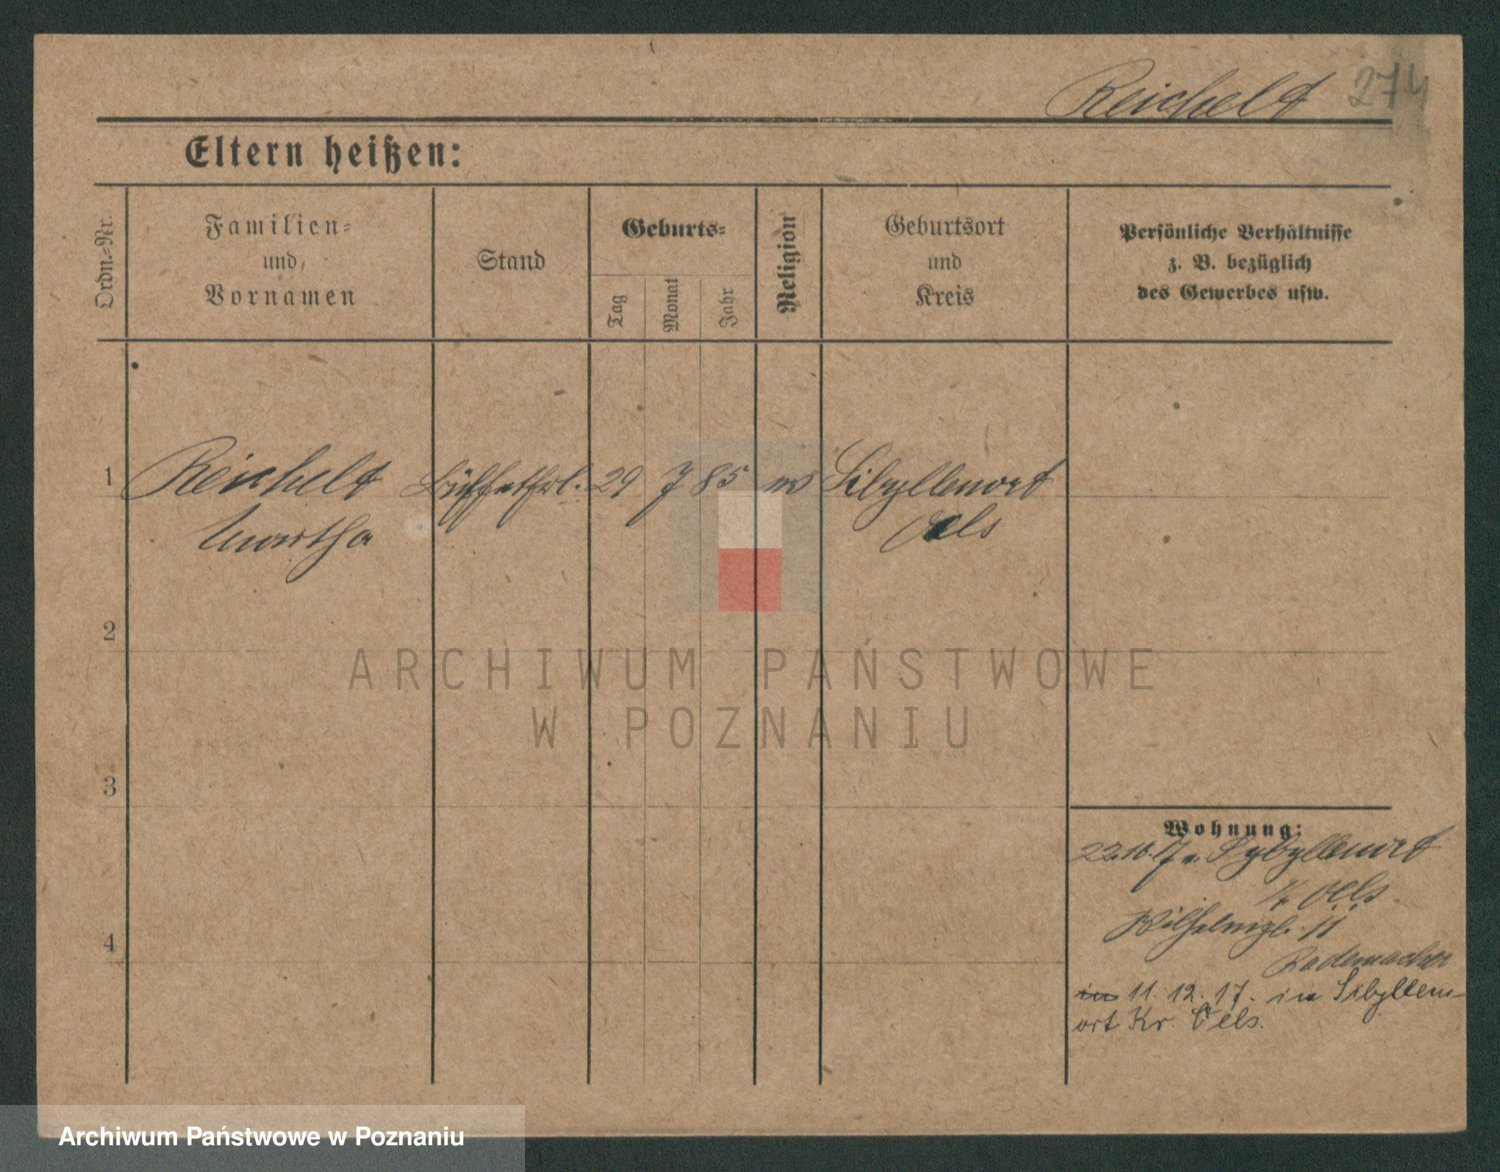 Reichelt 274
Eltern heißen:
Ordn.-Nr.
Familien-
und
Vornamen
Stand
Geburts-
Tag
Monat
Jahr
Religion
Geburtsort
und
Kreis
Persönliche Verhältnisse
z. B. bezüglich
des Gewerbes usw.
1 Reichelt Büffetfrl. 29 7 85 Sibyllenort
Martha Oels
2
3
4
ARCHIWUM PAŃSTWOWE
W POZNANIU
Wohnung:
22.10.17 v. Sybyllenort
Oels
11
Rademacher
in 11.12.17. in Sibyllen-
ort Kr. Oels.
Archiwum Państwowe w Poznaniu